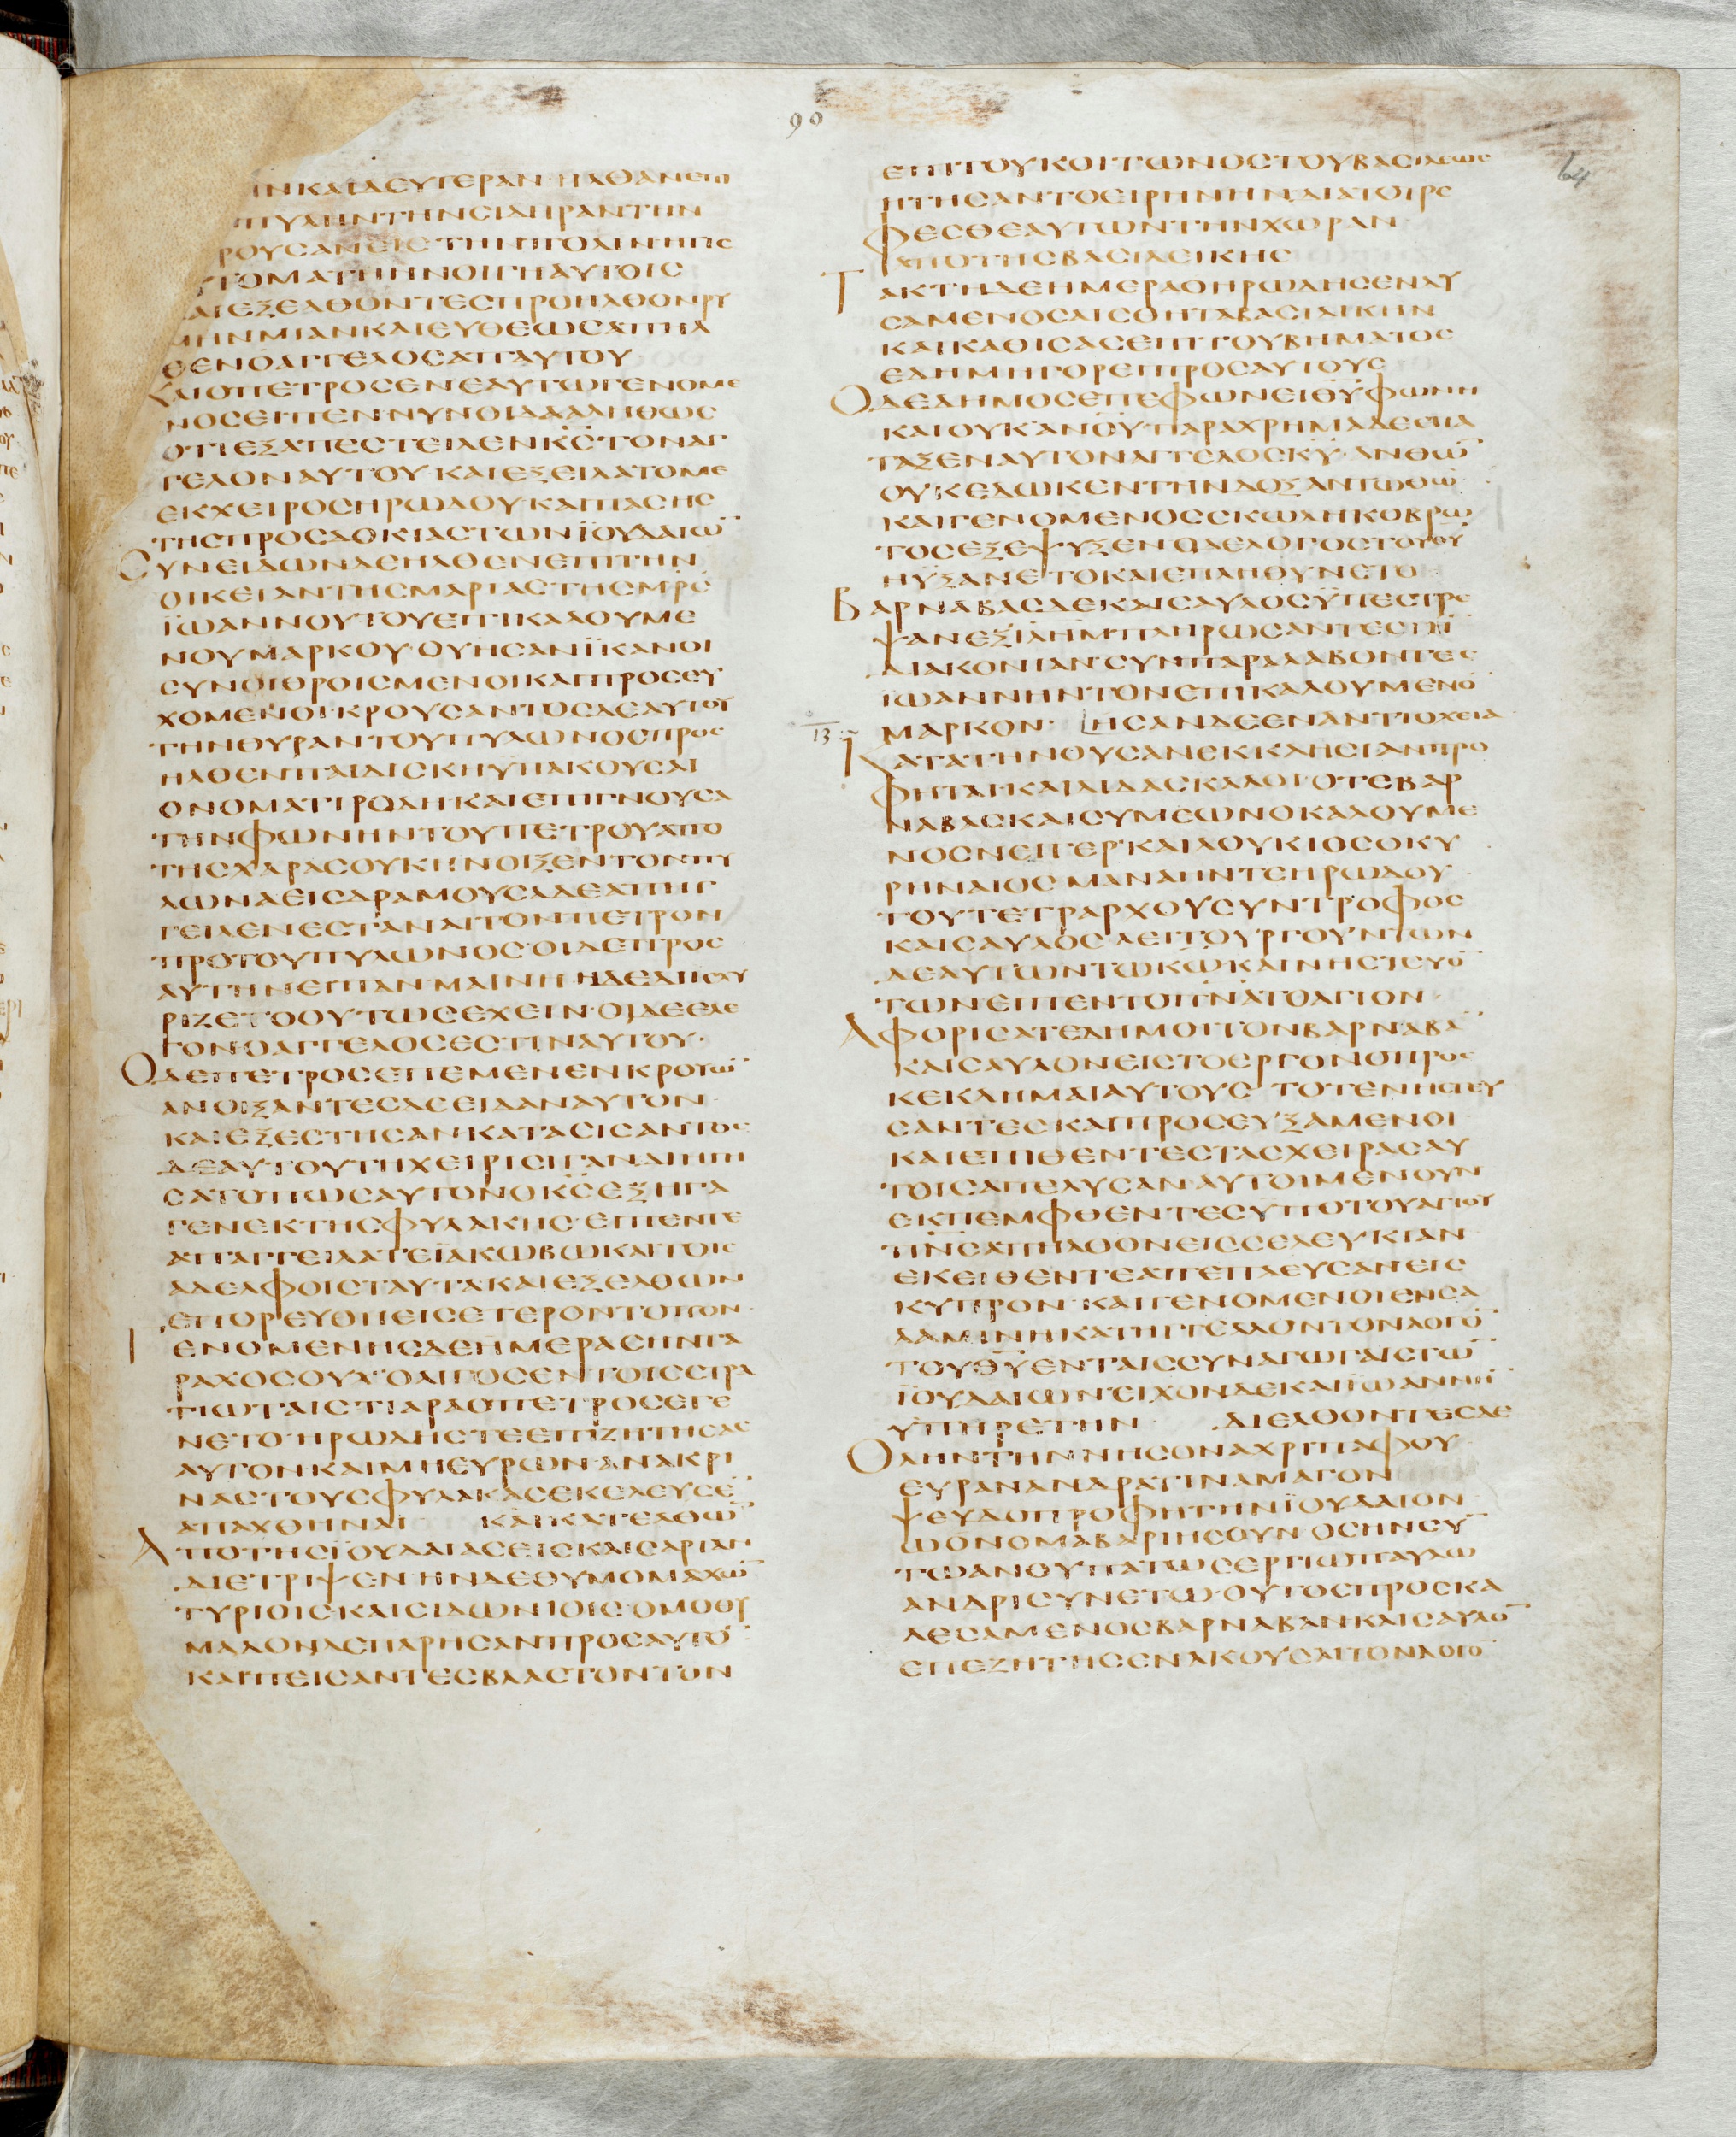 90
64
ΗΝΚΑΙΔΕΥΤΕΡΑΝ ΗΛΘΑΝΕΠΙ
ΠΥΛΗΝΤΗΝΣΙΔΗΡΑΝΤΗΝ
ΡΟΥΣΑΝΕΙΣΤΗΝΠΟΛΙΝΗΤΙΣ
ΥΤΟΜΑΤΗΗΝΟΙΓΗΑΥΤΟΙΣ
ΚΑΙΕΞΕΛΘΟΝΤΕΣΠΡΟΗΛΘΟΝΡΥ
ΜΗΝΜΙΑΝΚΑΙΕΥΘΕΩΣΑΠΗΛ
ΘΕΝΟΑΓΓΕΛΟΣΑΠΑΥΤΟΥ
ΚΑΙΟΠΕΤΡΟΣΕΝΕΑΥΤΩΓΕΝΟΜΕ
ΝΟΣΕΙΠΕΝ·ΝΥΝΟΙΔΑΑΛΗΘΩΣ
ΟΤΙΕΞΑΠΕΣΤΕΙΛΕΝΚΣΤΟΝΑΓ
ΓΕΛΟΝΑΥΤΟΥ·ΚΑΙΕΞΕΙΛΑΤΟΜΕ
ΕΚΧΕΙΡΟΣΗΡΩΔΟΥ·ΚΑΙΠΑΣΗΣ
ΤΗΣΠΡΟΣΔΟΚΙΑΣΤΩΝΪΟΥΔΑΙΩ̅
ΣΥΝΕΙΔΩΝΔΕΗΛΘΕΝΕΠΙΤΗΝ
ΟΙΚΕΙΑΝΤΗΣΜΑΡΙΑΣΤΗΣΜΡΣ
ΪΩΑΝΝΟΥΤΟΥΕΠΙΚΑΛΟΥΜΕ
ΝΟΥΜΑΡΚΟΥ·ΟΥΗΣΑΝΪΚΑΝΟΙ
ΣΥΝΟΙΘΡΟΙΣΜΕΝΟΙΚΑΙΠΡΟΣΕΥ
ΧΟΜΕΝΟΙ·ΚΡΟΥΣΑΝΤΟΣΔΕΑΥΤΟΥ
ΤΗΝΘΥΡΑΝΤΟΥΠΥΛΩΝΟΣΠΡΟΣ
ΗΛΘΕΝΠΑΙΔΙΣΚΗΥΠΑΚΟΥΣΑΙ
ΟΝΟΜΑΤΙΡΟΔΗ·ΚΑΙΕΠΙΓΝΟΥΣΑ
ΤΗΝΦΩΝΗΝΤΟΥΠΕΤΡΟΥΑΠΟ
ΤΗΣΧΑΡΑΣΟΥΚΗΝΟΙΞΕΝΤΟΝΠΥ
ΛΩΝΑΕΙΣΔΡΑΜΟΥΣΑΔΕΑΠΗΓ
ΓΕΙΛΕΝΕΣΤΑΝΑΙΤΟΝΠΕΤΡΟΝ
ΠΡΟΤΟΥΠΥΛΩΝΟΣ·ΟΙΔΕΠΡΟΣ
ΑΥΤΗΝΕΙΠΑΝ·ΜΑΙΝΗ·ΗΔΕΔΙΙΣΧΥ
ΡΙΖΕΤΟΟΥΤΩΣΕΧΕΙΝ·ΟΙΔΕΕΛΕ
ΓΟΝ·ΟΑΓΓΕΛΟΣΕΣΤΙΝΑΥΤΟΥ·
ΟΔΕΠΕΤΡΟΣΕΠΕΜΕΝΕΝΚΡΟΥΩ̅
ΑΝΟΙΞΑΝΤΕΣΔΕΕΙΔΑΝΑΥΤΟΝ
ΚΑΙΕΞΕΣΤΗΣΑΝ·ΚΑΤΑΣΙΣΑΝΤΟΣ
ΔΕΑΥΤΟΥΤΗΧΕΙΡΙΣΙΓΑΝΔΙΗΓΗ
ΣΑΤΟΠΩΣΑΥΤΟΝΟΚΣΕΞΗΓΑ
ΓΕΝΕΚΤΗΣΦΥΛΑΚΗΣ·ΕΙΠΕΝΤΕ
ΑΠΑΓΓΕΙΛΑΤΕΪΑΚΩΒΩΚΑΙΤΟΙΣ
ΑΔΕΛΦΟΙΣΤΑΥΤΑ·ΚΑΙΕΞΕΛΘΩΝ
ΕΠΟΡΕΥΘΗΕΙΣΕΤΕΡΟΝΤΟΠΟΝ
ΓΕΝΟΜΕΝΗΣΔΕΗΜΕΡΑΣΗΝΤΑ
ΡΑΧΟΣΟΥΚΟΛΙΓΟΣΕΝΤΟΙΣΣΤΡΑ
ΤΙΩΤΑΙΣΤΙΑΡΑΟΠΕΤΡΟΣΕΓΕ
ΝΕΤΟ·ΗΡΩΔΗΣΤΕΕΠΙΖΗΤΗΣΑΣ
ΑΥΤΟΝΚΑΙΜΗΕΥΡΩΝ·ΑΝΑΚΡΙ
ΝΑΣΤΟΥΣΦΥΛΑΚΑΣΕΚΕΛΕΥΣΕ̅
ΑΠΑΧΘΗΝΑΙ ΚΑΙΚΑΤΕΛΘΩ̅
ΑΠΟΤΗΣΪΟΥΔΑΙΑΣΕΙΣΚΑΙΣΑΡΙΑΝ
ΔΙΕΤΡΙΨΕΝ·ΗΝΔΕΘΥΜΟΜΑΧΩ̅
ΤΥΡΙΟΙΣΚΑΙΣΙΔΩΝΙΟΙΣ·ΟΜΟΘΥ
ΜΑΔΟΝΔΕΠΑΡΗΣΑΝΠΡΟΣΑΥΤΟ̅
ΚΑΙΠΕΙΣΑΝΤΕΣΒΛΑΣΤΟΝΤΟΝ
ΕΠΙΤΟΥΚΟΙΤΩΝΟΣΤΟΥΒΑΣΙΛΕΩΣ
ΗΤΗΣΑΝΤΟΕΙΡΗΝΗΝΔΙΑΤΟΤΡΕ
ΦΕΣΘΕΑΥΤΩΝΤΗΝΧΩΡΑΝ
ΑΠΟΤΗΣΒΑΣΙΛΕΙΚΗΣ
ΤΑΚΤΗΔΕΗΜΕΡΑΟΗΡΩΔΗΣΕΝΔΥ
ΣΑΜΕΝΟΣΑΙΣΘΗΤΑΒΑΣΙΛΙΚΗΝ
ΚΑΙΚΑΘΙΣΑΣΕΠΙΤΟΥΒΗΜΑΤΟΣ
ΕΔΗΜΗΓΟΡΕΙΠΡΟΣΑΥΤΟΥΣ
ΟΔΕΔΗΜΟΣΕΠΕΦΩΝΕΙΘΥΦΩΝΗ
ΚΑΙΟΥΚΑΝΟΥ·ΠΑΡΑΧΡΗΜΑΔΕΕΠΑ
ΤΑΞΕΝΑΥΤΟΝΑΓΓΕΛΟΣΚΥ·ΑΝΘΩ̅
ΟΥΚΕΔΩΚΕΝΤΗΝΔΟΞΑΝΤΩΘΩ
ΚΑΙΓΕΝΟΜΕΝΟΣΣΚΩΛΗΚΟΒΡΩ
ΤΟΣΕΞΕΨΥΞΕΝΟΔΕΛΟΓΟΣΤΟΥΘΥ
ΗΥΞΑΝΕΤΟΚΑΙΕΠΛΗΘΥΝΕΤΟ
ΒΑΡΝΑΒΑΣΔΕΚΑΙΣΑΥΛΟΣΫΠΕΣΤΡΕ
ΨΑΝΕΞΙΛΗΜΠΛΗΡΩΣΑΝΤΕΣΤΗ̅
ΔΙΑΚΟΝΙΑΝΣΥΝΠΑΡΑΛΑΒΟΝΤΕΣ
ΪΩΑΝΝΗΝΤΟΝΕΠΙΚΑΛΟΥΜΕΝΟ̅
13 ΜΑΡΚΟΝ· ΗΣΑΝΔΕΕΝΑΝΤΙΟΧΕΙΑ
ΚΑΤΑΤΗΝΟΥΣΑΝΕΚΚΛΗΣΙΑΝΠΡΟ
ΦΗΤΑΙΚΑΙΔΙΔΑΣΚΑΛΟΙ·ΟΤΕΒΑΡ
ΝΑΒΑΣΚΑΙΣΥΜΕΩΝΟΚΑΛΟΥΜΕ
ΝΟΣΝΕΙΓΕΡ·ΚΑΙΛΟΥΚΙΟΣΟΚΥ
ΡΗΝΑΙΟΣΜΑΝΑΗΝΤΕΗΡΩΔΟΥ
ΤΟΥΤΕΤΡΑΡΧΟΥΣΥΝΤΡΟΦΟΣ
ΚΑΙΣΑΥΛΟΣΛΕΙΤΟΥΡΓΟΥΝΤΩΝ
ΔΕΑΥΤΩΝΤΩΚΩΚΑΙΝΗΣΤΕΥΟ̅
ΤΩΝΕΙΠΕΝΤΟΠΝΑΤΟΑΓΙΟΝ
ΑΦΟΡΙΣΑΤΕΔΗΜΟΙΤΟΝΒΑΡΝΑΒΑ̅
ΚΑΙΣΑΥΛΟΝΕΙΣΤΟΕΡΓΟΝΟΠΡΟΣ
ΚΕΚΛΗΜΑΙΑΥΤΟΥΣ ΤΟΤΕΝΗΣΤΕΥ
ΣΑΝΤΕΣΚΑΙΠΡΟΣΕΥΞΑΜΕΝΟΙ
ΚΑΙΕΠΙΘΕΝΤΕΣΤΑΣΧΕΙΡΑΣΑΥ
ΤΟΙΣΑΠΕΛΥΣΑΝ·ΑΥΤΟΙΜΕΝΟΥΝ
ΕΚΠΕΜΦΘΕΝΤΕΣΥΠΟΤΟΥΑΓΙΟΥ
ΠΝΣΑΠΗΛΘΟΝΕΙΣΣΕΛΕΥΚΙΑΝ
ΕΚΕΙΘΕΝΤΕΑΠΕΠΛΕΥΣΑΝΕΙΣ
ΚΥΠΡΟΝ·ΚΑΙΓΕΝΟΜΕΝΟΙΕΝΣΑ
ΛΑΜΙΝΗΚΑΤΗΓΓΕΛΛΟΝΤΟΝΛΟΓΟ̅
ΤΟΥΘΥΕΝΤΑΙΣΣΥΝΑΓΩΓΑΙΣΤΩ̅
ΪΟΥΔΑΙΩΝ·ΕΙΧΟΝΔΕΚΑΙΪΩΑΝΝΗ̅
ΥΠΗΡΕΤΗΝ ΔΙΕΛΘΟΝΤΕΣΔΕ
ΟΛΗΝΤΗΝΝΗΣΟΝΑΧΡΙΠΑΦΟΥ
ΕΥΡΑΝΑΝΔΡΑΤΙΝΑΜΑΓΟΝ
ΨΕΥΔΟΠΡΟΦΗΤΗΝΪΟΥΔΑΙΟΝ
ΩΟΝΟΜΑΒΑΡΙΗΣΟΥΝ·ΟΣΗΝΣΥ̅
ΤΩΑΝΘΥΠΑΤΩΣΕΡΓΙΩΠΑΥΛΩ
ΑΝΔΡΙΣΥΝΕΤΩ·ΟΥΤΟΣΠΡΟΣΚΑ
ΛΕΣΑΜΕΝΟΣΒΑΡΝΑΒΑΝΚΑΙΣΑΥΛΟ̅
ΕΠΕΖΗΤΗΣΕΝΑΚΟΥΣΑΙΤΟΝΛΟΓΟ̅